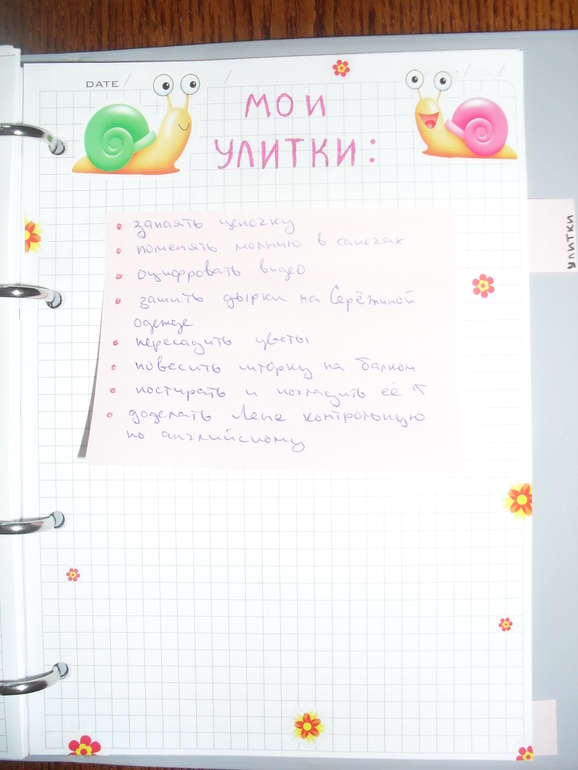 DATE / /
/ /
МОИ
УЛИТКИ:
запаять цепочку
поменять молнию в сапогах
оцифровать видео
зашить дырки на Серёжиной
одежде
пересадить цветы
повесить шторку на балкон
постирать и погладить её ↑
доделать Лене контрольную
по английскому
УЛИТКИ